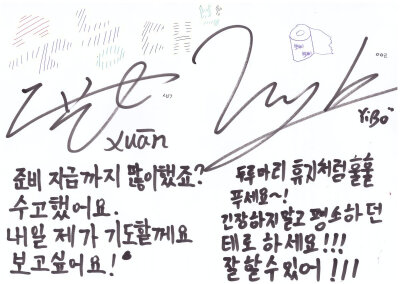 Xuān
준비 지금까지 많이했죠?
수고했어요.
내일 제가 기도할께요
보고싶어요!
YiBo
두루마리 휴지처럼 훌훌
푸세요~!
긴장하지말고 평소하던
테로 하세요!!!
잘할수있어!!!